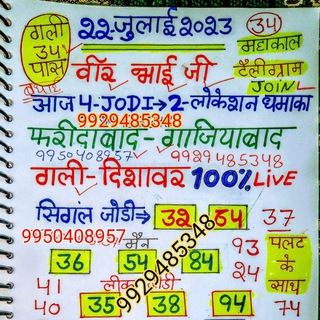 गली
34
पास
बधाई
22-जुलाई 2023
34
महाकाल
टैलीग्राम
JOIN
वीर भाई जी
आज 4-JODI→2-लोकेशन धमाका
9929485348
फरीदाबाद - गाजियाबाद
9950408957
9929485348
गली-दिशावर 100% LIVE
सिगंल जोडी→ 32 84 37
9950408957
मैन
93
पलट
36 54 84
24
के
41
साथ
40 35 38 94 74
9929485348